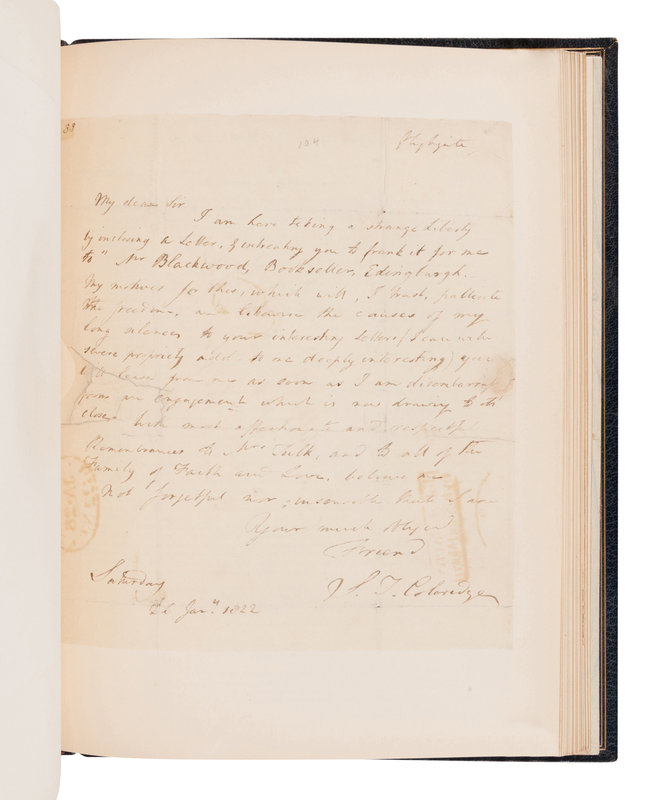 88
104
Highgate
My dear Sir
I am here taking a strange Liberty
by inclosing a Letter, & intreating you to frank it for me
to "Mr Blackwood, Bookseller, Edinburgh.
My motives for this, which will, I trust, palliate
the freedom, and likewise the causes of my
long silence to your interesting Letters (I can with
severe propriety add - to me deeply interesting) you
will learn from me as soon as I am disembarrassed
from an engagement which is now drawing to its
close. With most affectionate and respectful
Remembrances to Mrs Tulk, and to all of the
Family of Faith and Love, believe me
Not forgetful nor insensible that I am
Your much obliged
Friend
S. T. Coleridge
Saturday
26 Jany 1822